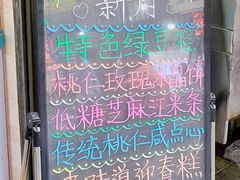 特色绿豆糕
桃仁玫瑰米馅饼
低糖芝麻江米条
传统桃仁咸点心
味道迎春糕